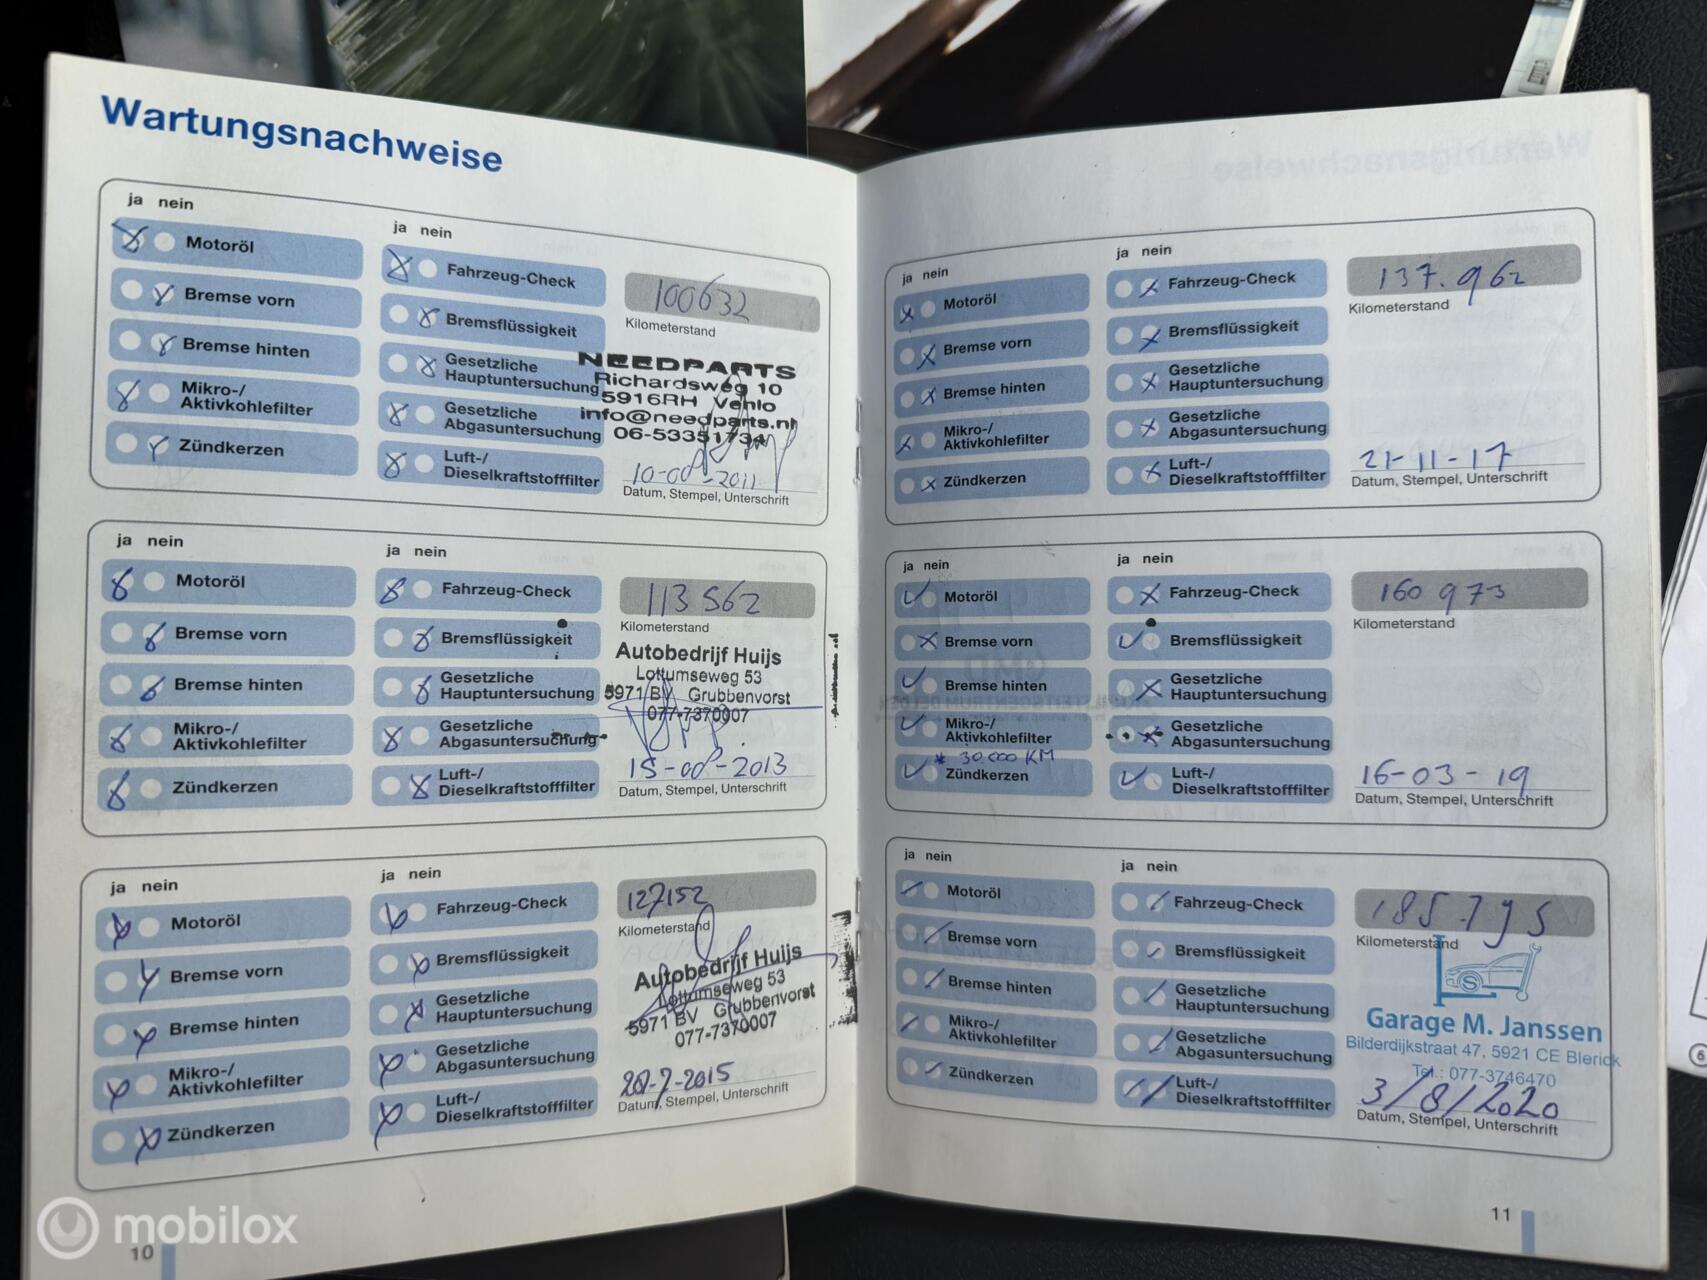 Wartungsnachweise
ja nein
Motoröl
Bremse vorn
Bremse hinten
Mikro-/
Aktivkohlefilter
Zündkerzen
ja nein
Fahrzeug-Check
Bremsflüssigkeit
Gesetzliche
Hauptuntersuchung
Gesetzliche
Abgasuntersuchung
Luft-/
Dieselkraftstofffilter
100632
Kilometerstand
NEEDPARTS
Richardsweg 10
5916RH Venlo
info@needparts.nl
06-53351734
10-08-2011
Datum, Stempel, Unterschrift
ja nein
Motoröl
Bremse vorn
Bremse hinten
Mikro-/
Aktivkohlefilter
Zündkerzen
ja nein
Fahrzeug-Check
Bremsflüssigkeit
Gesetzliche
Hauptuntersuchung
Gesetzliche
Abgasuntersuchung
Luft-/
Dieselkraftstofffilter
113562
Kilometerstand
Autobedrijf Huijs
Lottumseweg 53
5971 BV Grubbenvorst
077-7370007
15-08-2013
Datum, Stempel, Unterschrift
ja nein
Motoröl
Bremse vorn
Bremse hinten
Mikro-/
Aktivkohlefilter
Zündkerzen
ja nein
Fahrzeug-Check
Bremsflüssigkeit
Gesetzliche
Hauptuntersuchung
Gesetzliche
Abgasuntersuchung
Luft-/
Dieselkraftstofffilter
127152
Kilometerstand
Autobedrijf Huijs
Lottumseweg 53
5971 BV Grubbenvorst
077-7370007
Datum, Stempel, Unterschrift
10
ja nein
Motoröl
Bremse vorn
Bremse hinten
Mikro-/
Aktivkohlefilter
Zündkerzen
ja nein
Fahrzeug-Check
Bremsflüssigkeit
Gesetzliche
Hauptuntersuchung
Gesetzliche
Abgasuntersuchung
Luft-/
Dieselkraftstofffilter
137.962
Kilometerstand
21-11-17
Datum, Stempel, Unterschrift
ja nein
Motoröl
Bremse vorn
Bremse hinten
Mikro-/
Aktivkohlefilter
* 30.000 KM
Zündkerzen
ja nein
Fahrzeug-Check
Bremsflüssigkeit
Gesetzliche
Hauptuntersuchung
Gesetzliche
Abgasuntersuchung
Luft-/
Dieselkraftstofffilter
160 973
Kilometerstand
16-03-19
Datum, Stempel, Unterschrift
ja nein
Motoröl
Bremse vorn
Bremse hinten
Mikro-/
Aktivkohlefilter
Zündkerzen
ja nein
Fahrzeug-Check
Bremsflüssigkeit
Gesetzliche
Hauptuntersuchung
Gesetzliche
Abgasuntersuchung
Luft-/
Dieselkraftstofffilter
185.795
Kilometerstand
Garage M. Janssen
Bilderdijkstraat 47, 5921 CE Blerick
Tel.: 077-3746470
3/8/2020
Datum, Stempel, Unterschrift
11
mobilox